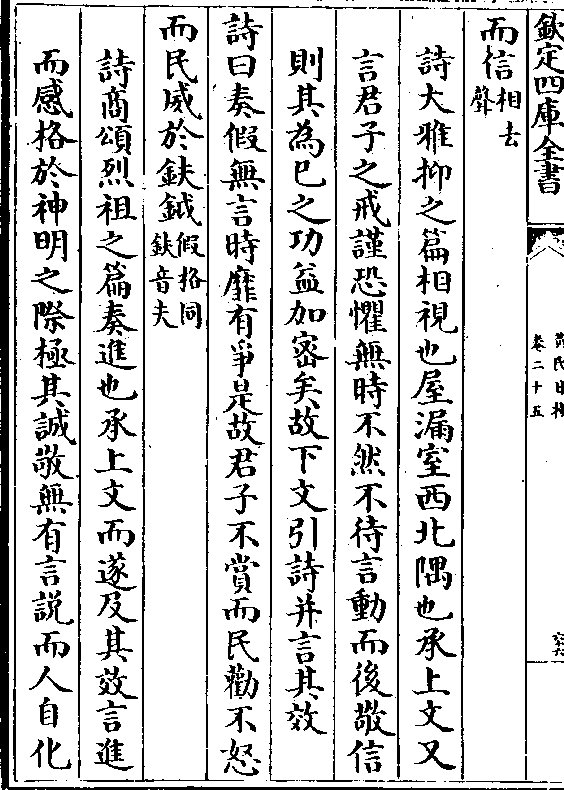 欽定四庫全書
卷二十五
而信相去聲
詩大雅抑之篇相視也屋漏室西北隅也承上文又
言君子之戒謹恐懼無時不然不待言動而後敬信
則其為己之功益加密矣故下文引詩并言其效
詩曰奏假無言時靡有爭是故君子不賞而民勸不怒
而民威於鈇鉞假格同鈇音夫
詩商頌烈祖之篇奏進也承上文而遂及其效言進
而感格於神明之際極其誠敬無有言說而人自化